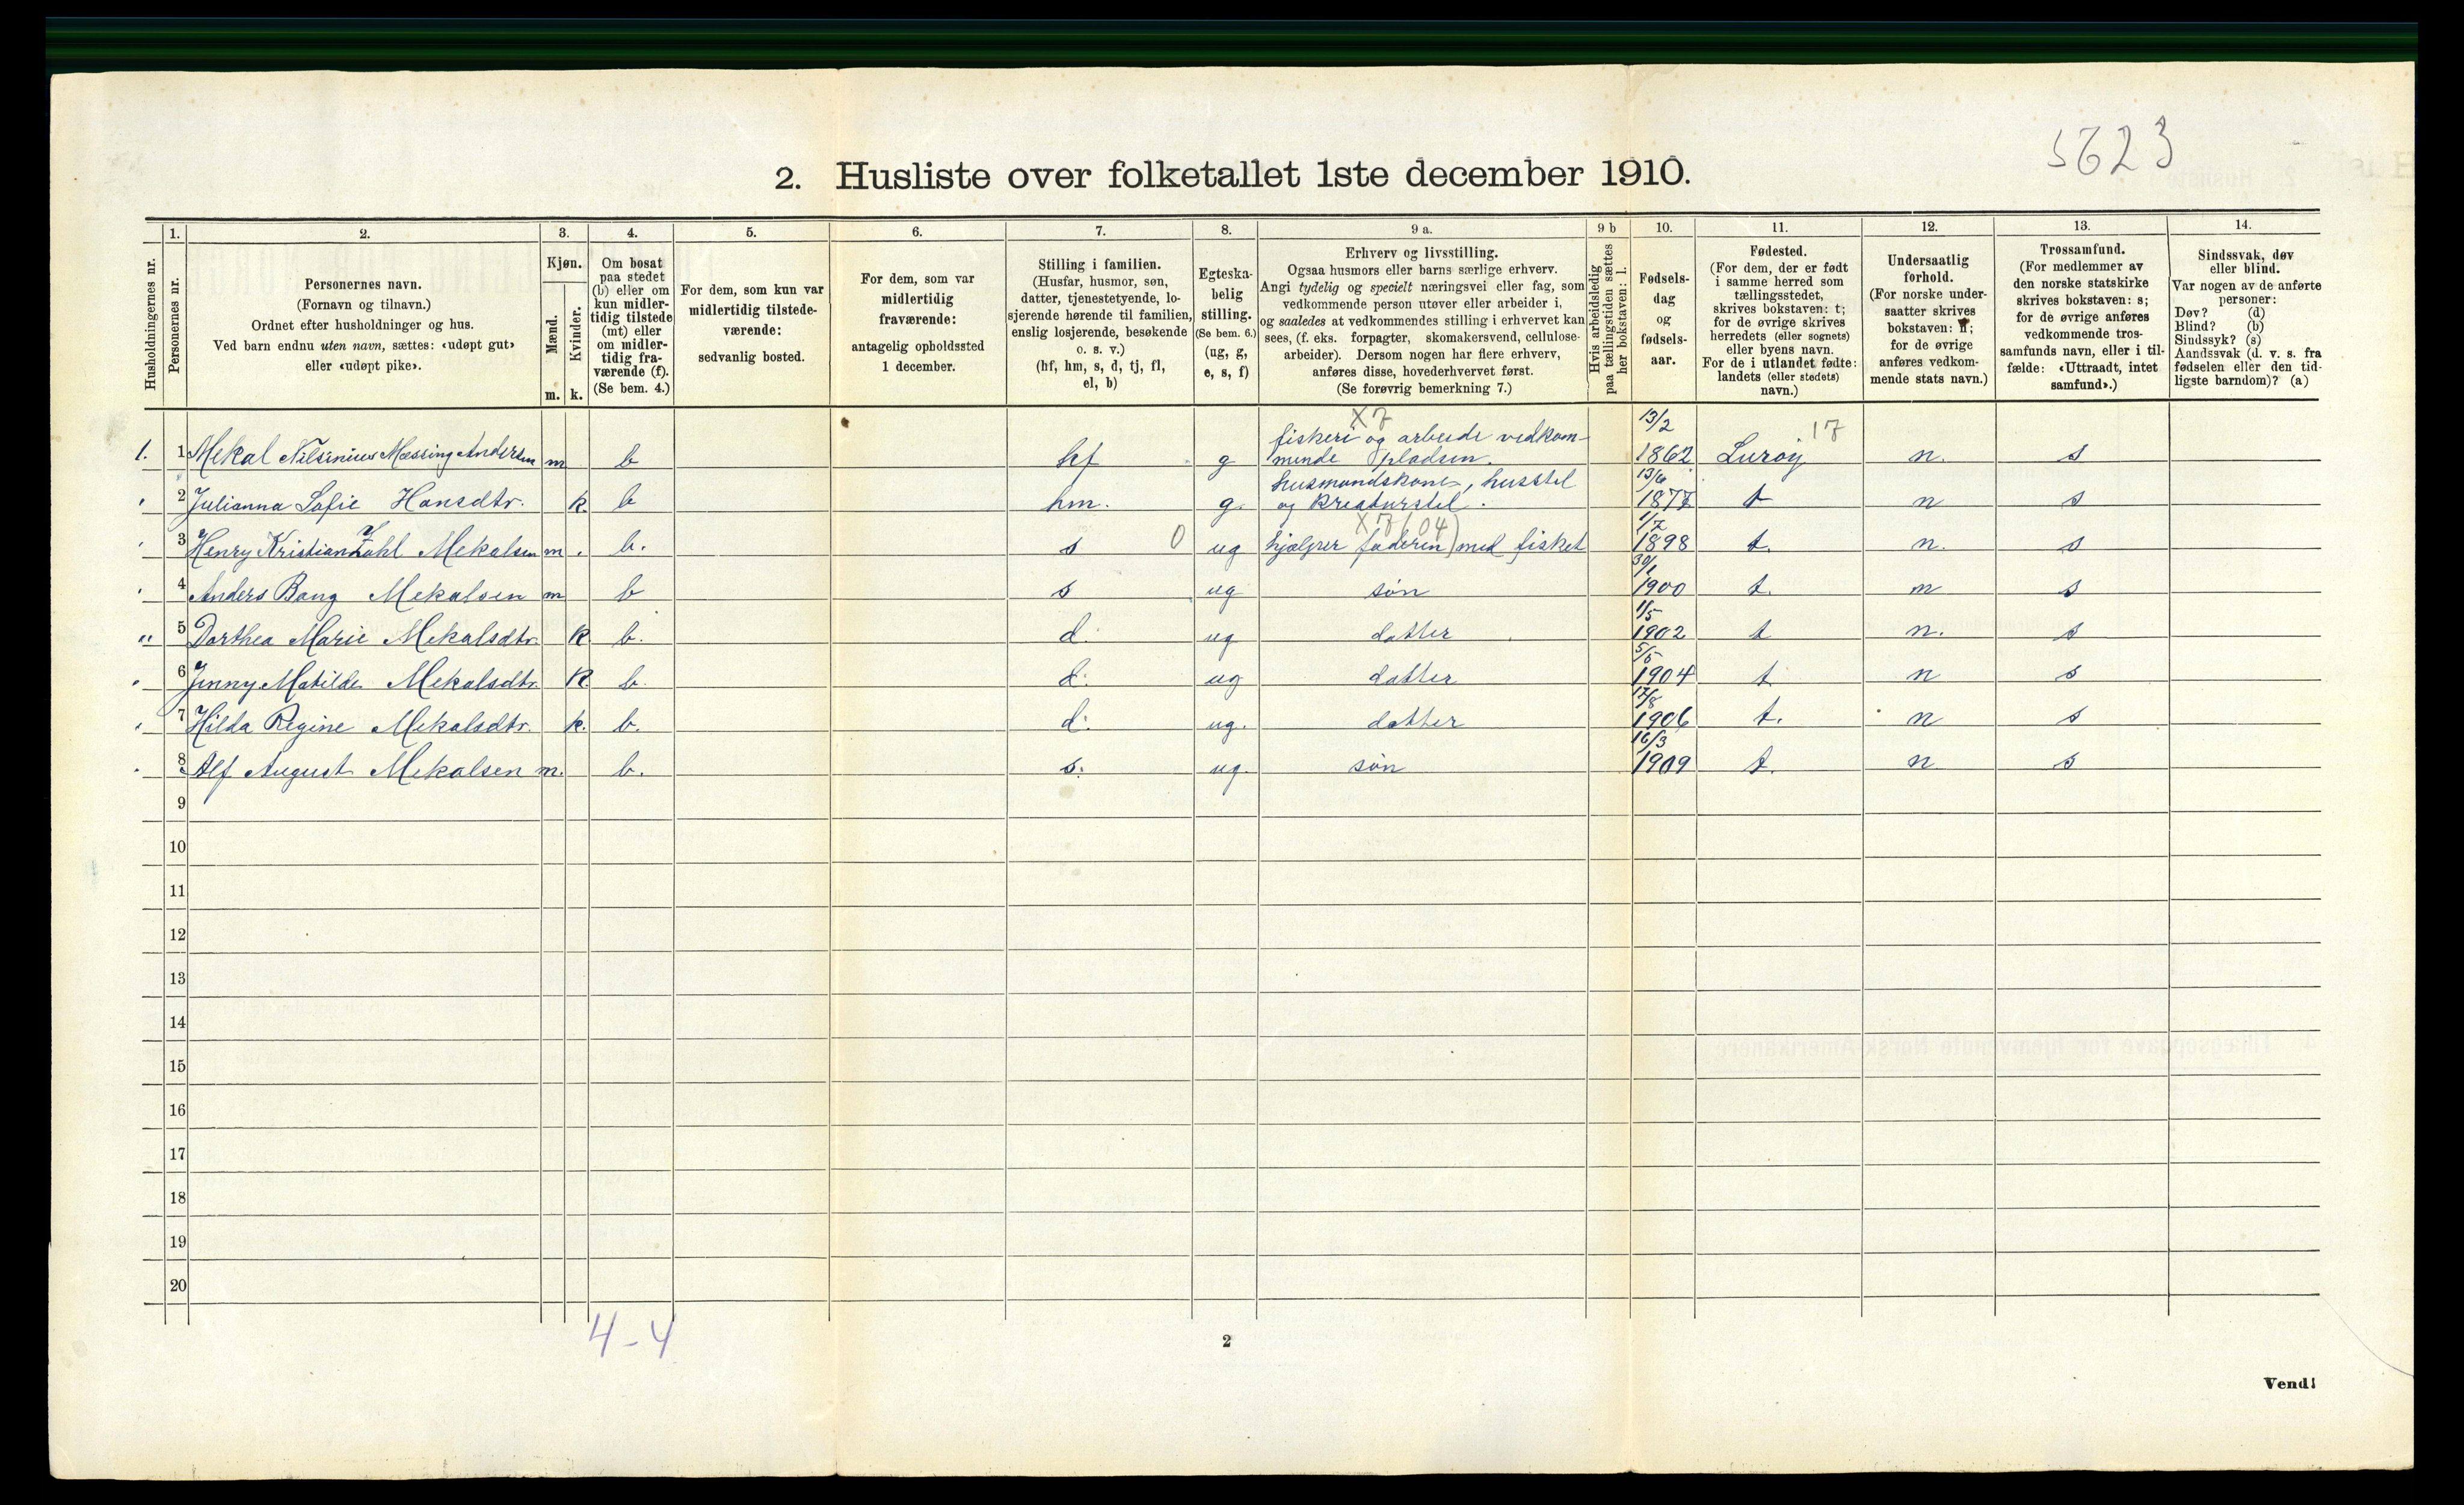 5623
2. Husliste over folketallet 1ste december 1910.
Husholdningernes nr.
1.
Personernes nr.
2.
Personernes navn.
(Fornavn og tilnavn.)
Ordnet efter husholdninger og hus.
Ved barn endnu uten navn, sættes: «udøpt gut»
eller «udøpt pike».
3.
Kjøn.
Mænd.
Kvinder.
m. k.
4.
Om bosat
paa stedet
(b) eller om
kun midler-
tidig tilstede
(mt) eller
om midler-
tidig fra-
værende (f).
(Se bem. 4.)
5.
For dem, som kun var
midlertidig tilstede-
værende:
sedvanlig bosted.
6.
For dem, som var
midlertidig
fraværende:
antagelig opholdssted
1 december.
7.
Stilling i familien.
(Husfar, husmor, søn,
datter, tjenestetyende, lo-
sjerende hørende til familien,
enslig losjerende, besøkende
o. s. v.)
(hf, hm, s, d, tj, fl,
el, b)
8.
Egteska-
belig
stilling.
(Se bem. 6.)
(ug, g,
e, s, f)
9 a.
Erhverv og livsstilling.
Ogsaa husmors eller barns særlige erhverv.
Angi tydelig og specielt næringsvei eller fag, som
vedkommende person utøver eller arbeider i,
og saaledes at vedkommendes stilling i erhvervet kan
sees, (f. eks. forpagter, skomakersvend, cellulose-
arbeider). Dersom nogen har flere erhverv,
anføres disse, hovederhvervet først.
(Se forøvrig bemerkning 7.)
9 b
Hvis arbeidsledig
paa tællingstiden sættes
her bokstaven: l.
10.
Fødsels-
dag
og
fødsels-
aar.
11.
Fødested.
(For dem, der er født
i samme herred som
tællingsstedet,
skrives bokstaven: t;
for de øvrige skrives
herredets (eller sognets)
eller byens navn.
For de i utlandet fødte:
landets (eller stedets)
navn.)
12.
Undersaatlig
forhold.
(For norske under-
saatter skrives
bokstaven: n;
for de øvrige
anføres vedkom-
mende stats navn.)
13.
Trossamfund.
(For medlemmer av
den norske statskirke
skrives bokstaven: s;
for de øvrige anføres
vedkommende tros-
samfunds navn, eller i til-
fælde: «Uttraadt, intet
samfund».)
14.
Sindssvak, døv
eller blind.
Var nogen av de anførte
personer:
Døv? (d)
Blind? (b)
Sindssyk? (s)
Aandssvak (d. v. s. fra
fødselen eller den tid-
ligste barndom)? (a)
X 7 13/2 17
fiskeri og arbeide vedkom-
1. 1 Mekal Nilsenius Messing Andersen m b hf g mende pladsen. 1862 Lurøy n. s
husmandskone, husstel 13/6
" 2 Julianna Sofie Hansdtr. k. b hm. g. og kreaturstel. 1877 t n s
X 7 (04) 1/7
" 3 Henry Kristian Zahl Mekalsen m. b. s 0 ug hjælper faderen med fisket 1898 t. n. s
30/1
" 4 Anders Bang Mekalsen m b s ug søn 1900 t. n s
1/5
" 5 Dorthea Marie Mekalsdtr. k. b. d. ug datter 1902 t n. s
5/5
" 6 Jenny Matilde Mekalsdtr. k. b. d. ug datter 1904 t n s
17/8
" 7 Hilda Regine Mekalsdtr. k. b. d. ug. datter 1906 t. n s
16/3
" 8 Alf August Mekalsen m. b. s. ug. søn 1909 t. n s
9
10
11
12
13
14
15
16
17
18
19
20
4-4
2
Vend!